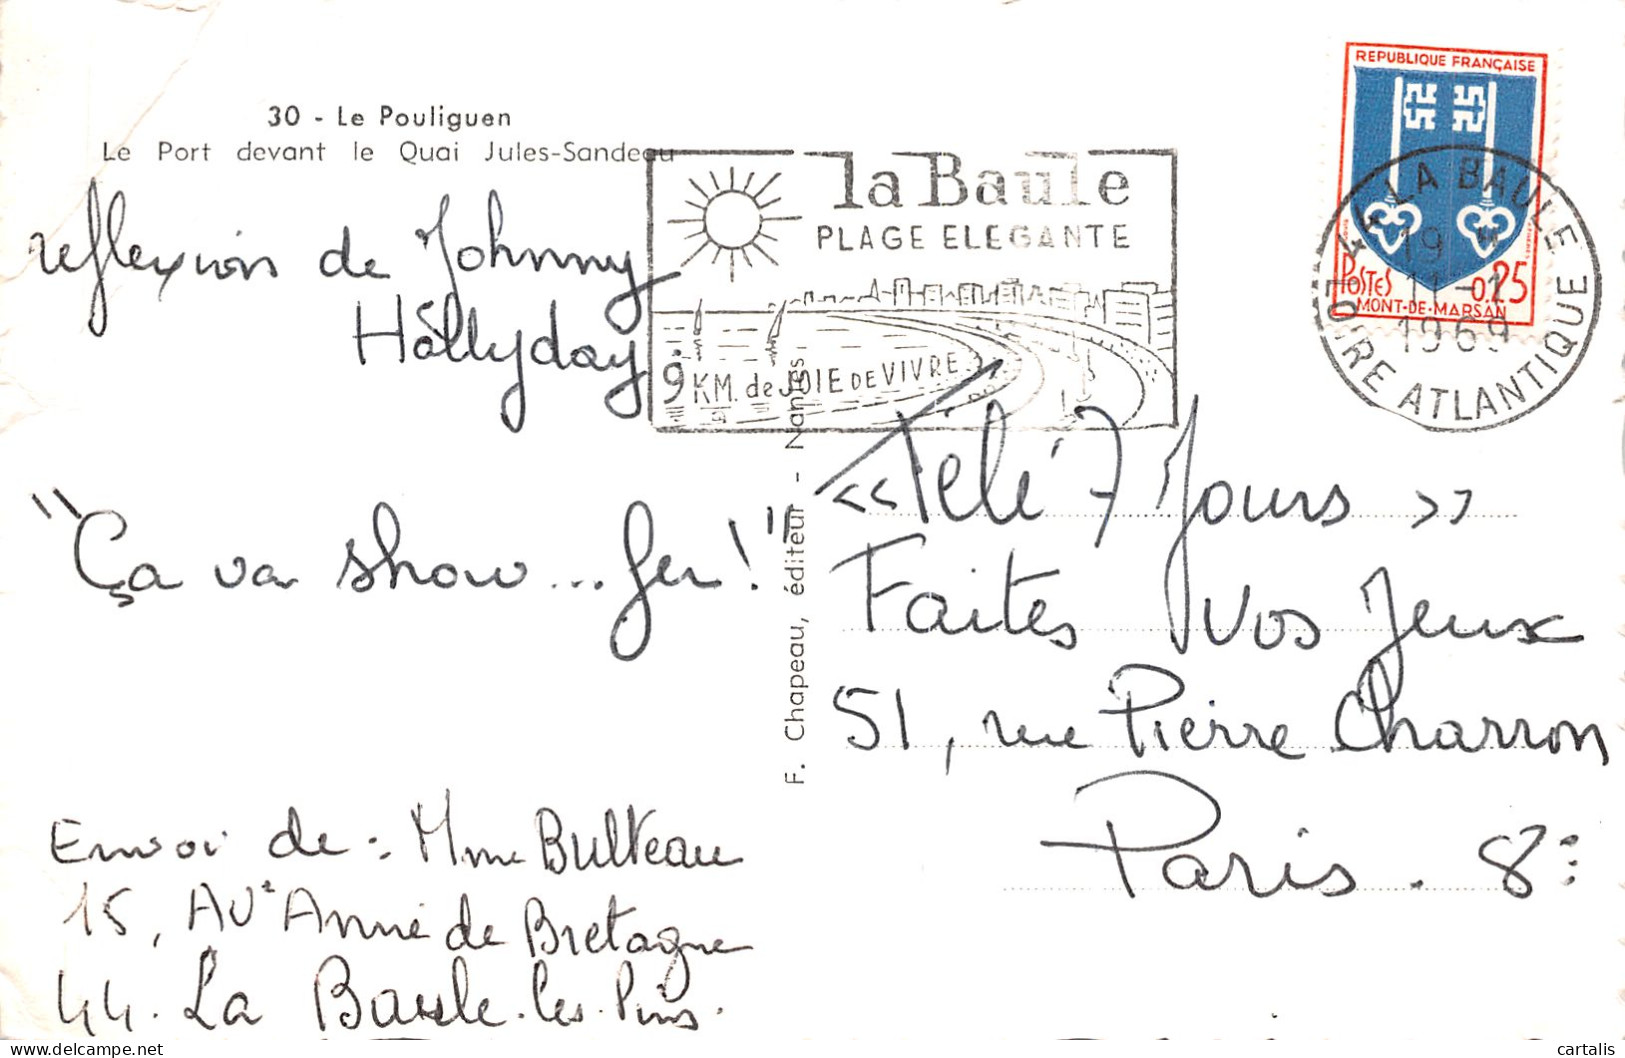 30 - Le Pouliguen
Le Port devant le Quai Jules-Sandeau
reflexion de Johnny
Hållyday :
"Ça va show... fer !"
Envoi de : Mme Bulteau
15, Avᵉ Anne de Bretagne
44. La Baule-les-Pins.
F. Chapeau, éditeur - Nantes
la Baule
PLAGE ELEGANTE
9 KM. de JOIE DE VIVRE
REPUBLIQUE FRANÇAISE
POSTES 0.25
MONT-DE-MARSAN
44 LA BAULE
19 H
11 - 1
1969
LOIRE ATLANTIQUE
« Télé 7 Jours »
Faites Vos Jeux
51, rue Pierre Charron
Paris. 8ᵉ
cartalis